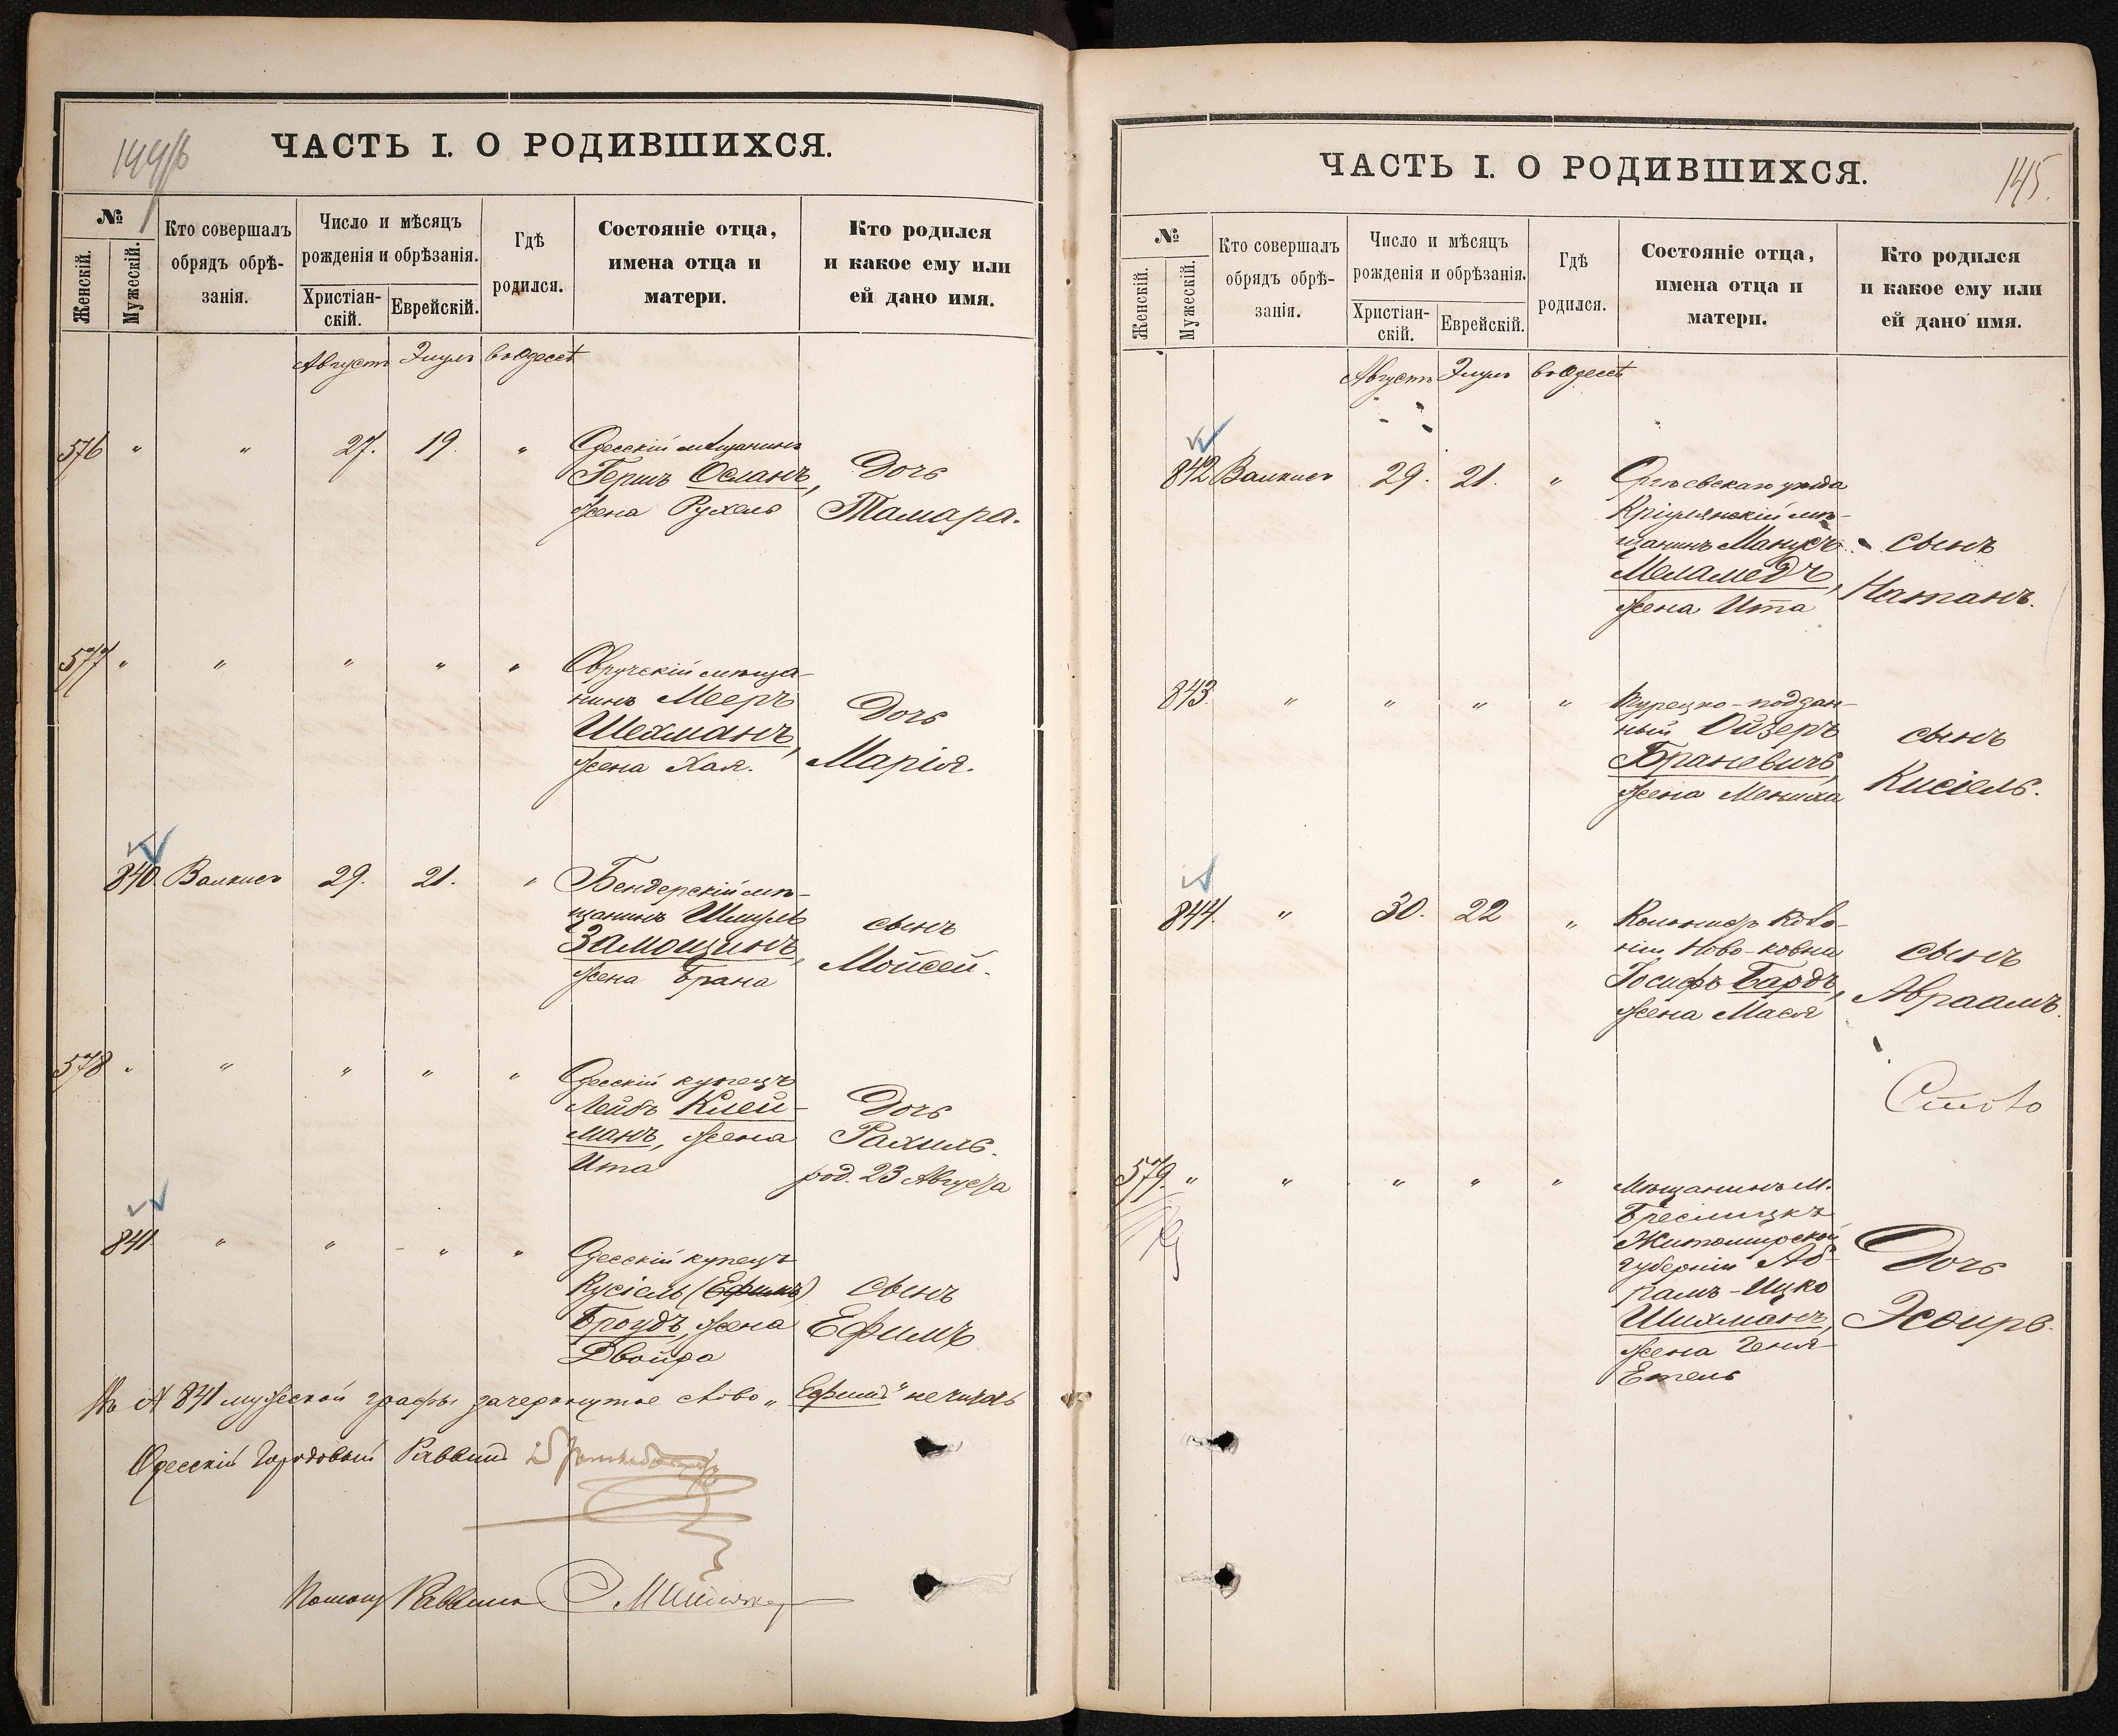 144/б
ЧАСТЬ I. О РОДИВШИХСЯ.
№
Женскій.
Мужескій.
Кто совершалъ
обрядъ обрѣ-
занія.
Число и мѣсяцъ
рожденія и обрѣзанія.
Христіан-
скій.
Еврейскій.
Гдѣ
родился.
Состояніе отца,
имена отца и
матери.
Кто родился
и какое ему или
ей дано имя.
Августъ Элулъ въ Одессѣ
576 " " 27. 19. " Одесскій мѣщанинъ
Гершъ Осланъ, Дочь
жена Рухель Тамара.
577 " " " " " Овручскій мѣща-
нинъ Мееръ
Шехманъ, Дочь
жена Хая. Марія.
840. Валкисъ 29. 21. " Бендерскій мѣ-
щанинъ Шмуль сынъ
Замощинъ, Мойсей.
жена Брана
578 " " " " " Одесскій купецъ
Лейбъ Клей- Дочь
манъ, жена Рахиль.
Ита род. 23 Августа
841 " " " " Одесскій купецъ
Кусіель (Ефимъ) сынъ
Броудъ, жена Ефимъ
Двойра
841 мужеской графы зачеркнутое слово „Ефимъ" не читать
Одесскій Городовый Раввинъ
Помощ Раввина
145.
ЧАСТЬ I. О РОДИВШИХСЯ.
№
Женскій.
Мужескій.
Кто совершалъ
обрядъ обрѣ-
занія.
Число и мѣсяцъ
рожденія и обрѣзанія.
Христіан-
скій.
Еврейскій.
Гдѣ
родился.
Состояніе отца,
имена отца и
матери.
Кто родился
и какое ему или
ей дано имя.
Августъ Элулъ въ Одессѣ
842 Валкисъ 29. 21. " Оргѣевскаго уѣзда
Кріулянскій мѣ-
щанинъ Манусъ - сынъ
Меламедъ, Натанъ.
жена Ита
843. " " " " Турецко-поддан-
ный Ойзеръ сынъ
Браневичъ, Кисіель.
жена Мениха
844. " 30. 22 " Колонистъ Коло-
ніи Ново-ковна сынъ
Іосифъ Бардъ, Авраамъ.
жена Мася
579. " " " " " Мѣщанинъ м.
Житомирской
губерніи Аб- Дочь
рамъ-Ицко
Шихманъ, Эсѳирь.
жена Геня
Етель